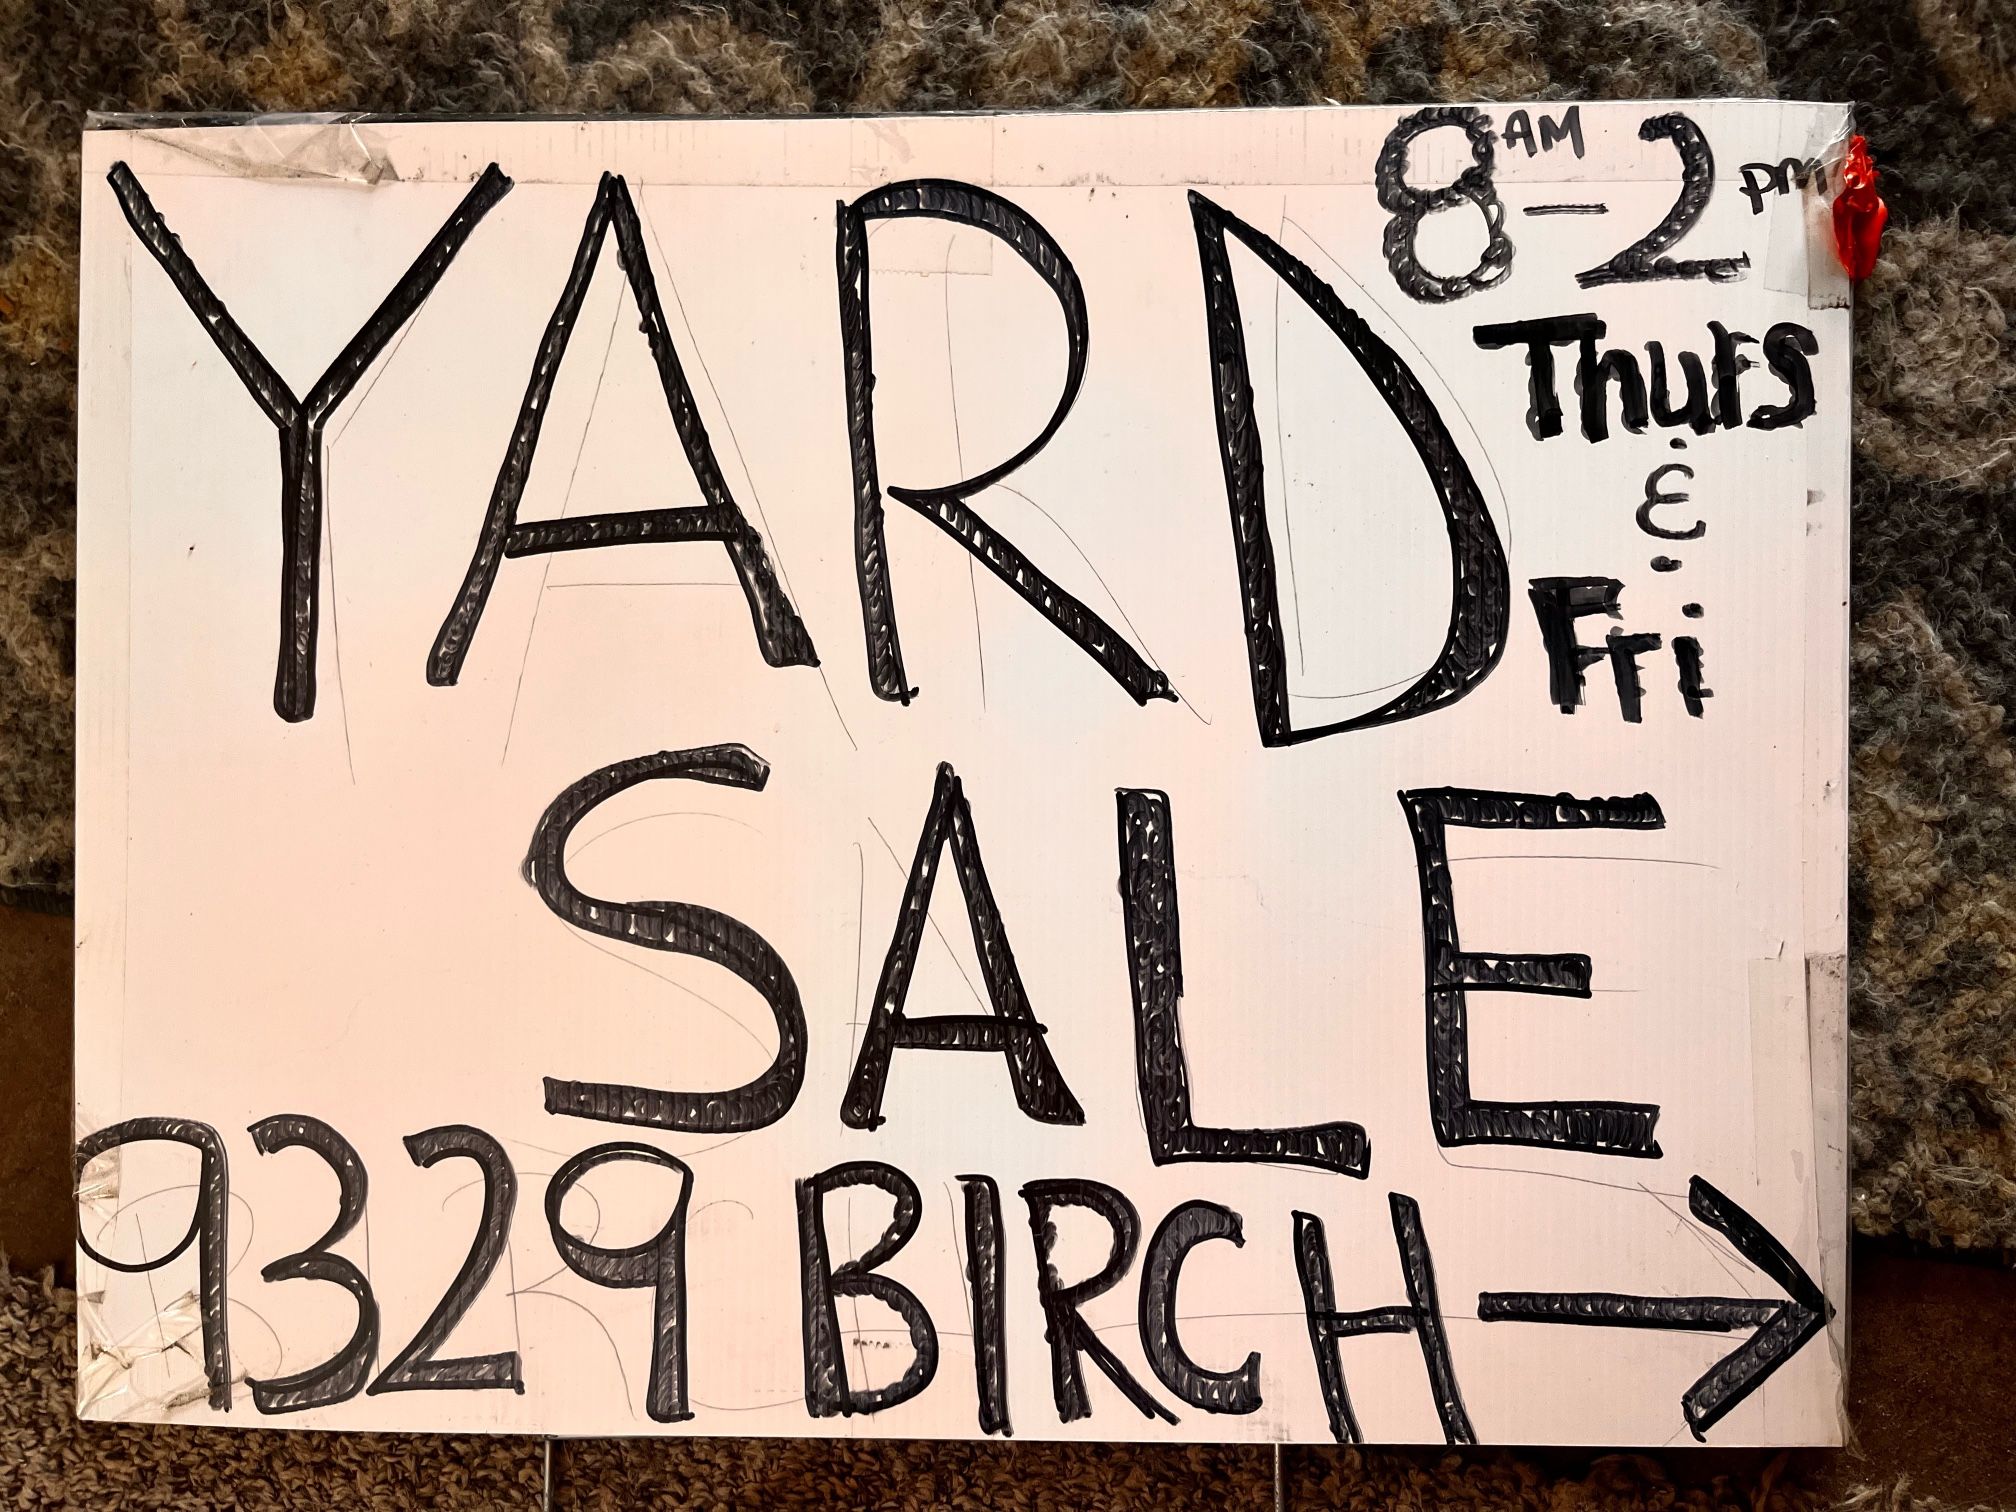 YARD
8AM-2pm
Thurs
&
Fri
SALE
9329 BIRCH →